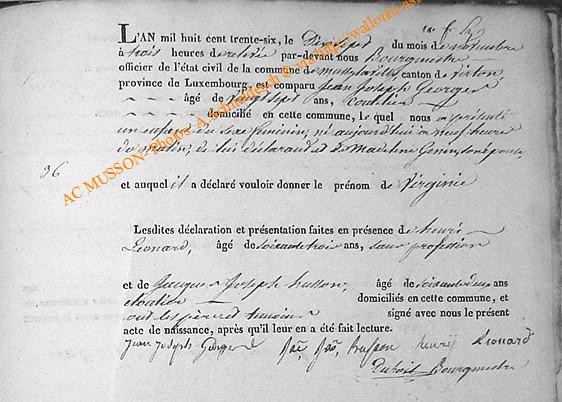 L'AN mil huit cent trente-six, le Dixsept du mois de novembre
à trois heures de relevée par-devant nous Bourgmestre
officier de l'état civil de la commune de mussylaville, canton de virton,
province de Luxembourg, est comparu Jean Joseph Georges
âgé de vingt sept ans, cloutier
domicilié en cette commune, le quel nous a présenté
un enfant du sexe féminin, né aujourd'hui a neuf heure
du matin, de lui déclarant et de Madeline Genin, son épouse
36
et auquel il a déclaré vouloir donner le prénom de Virginie
Lesdites déclaration et présentation faites en présence de henri
Leonard, âgé de soixante trois ans, sans profession
et de Jacques Joseph husson, âgé de soixante deux ans
cloutier domiciliés en cette commune, et
ont les père et temoins signé avec nous le présent
acte de naissance, après qu'il leur en a été fait lecture.
Jean Joseph George husson henrij Leonard
Bourgmestre
AC MUSSON- Photos- A. schmedesch © via http://wallonia-as